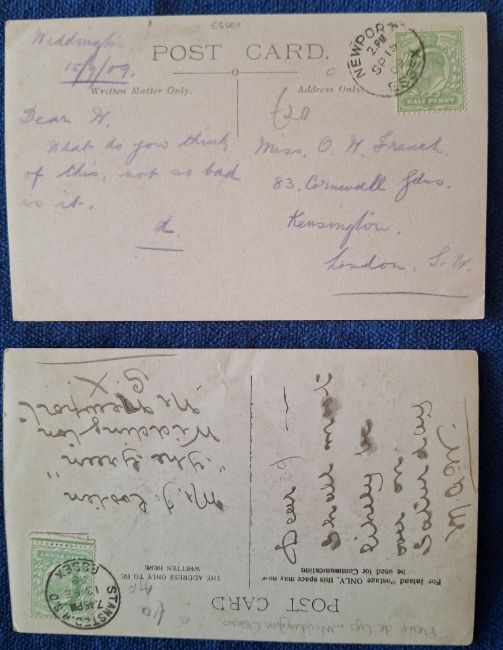 ESSEX
Widdington
15/9/09.
POST CARD.
Written Matter Only.
Address Only.
£20
NEWPORT
2 PM
SP 15
09
ESSEX
HALF PENNY
Dear W,
What do you think
of this, not so bad
is it.
Miss. O. W. French
83. Cornwall Gdns.
Kensington.
London. S. W.
POST CARD
For Inland Postage ONLY, this space may now
be used for Communication
THE ADDRESS ONLY TO BE
WRITTEN HERE
STANSTED R.S.O.
7.45PM
ESSEX
Dear
Shall most
likely be
over on
Saturday
"The Green"
Widdington
Nr Newport